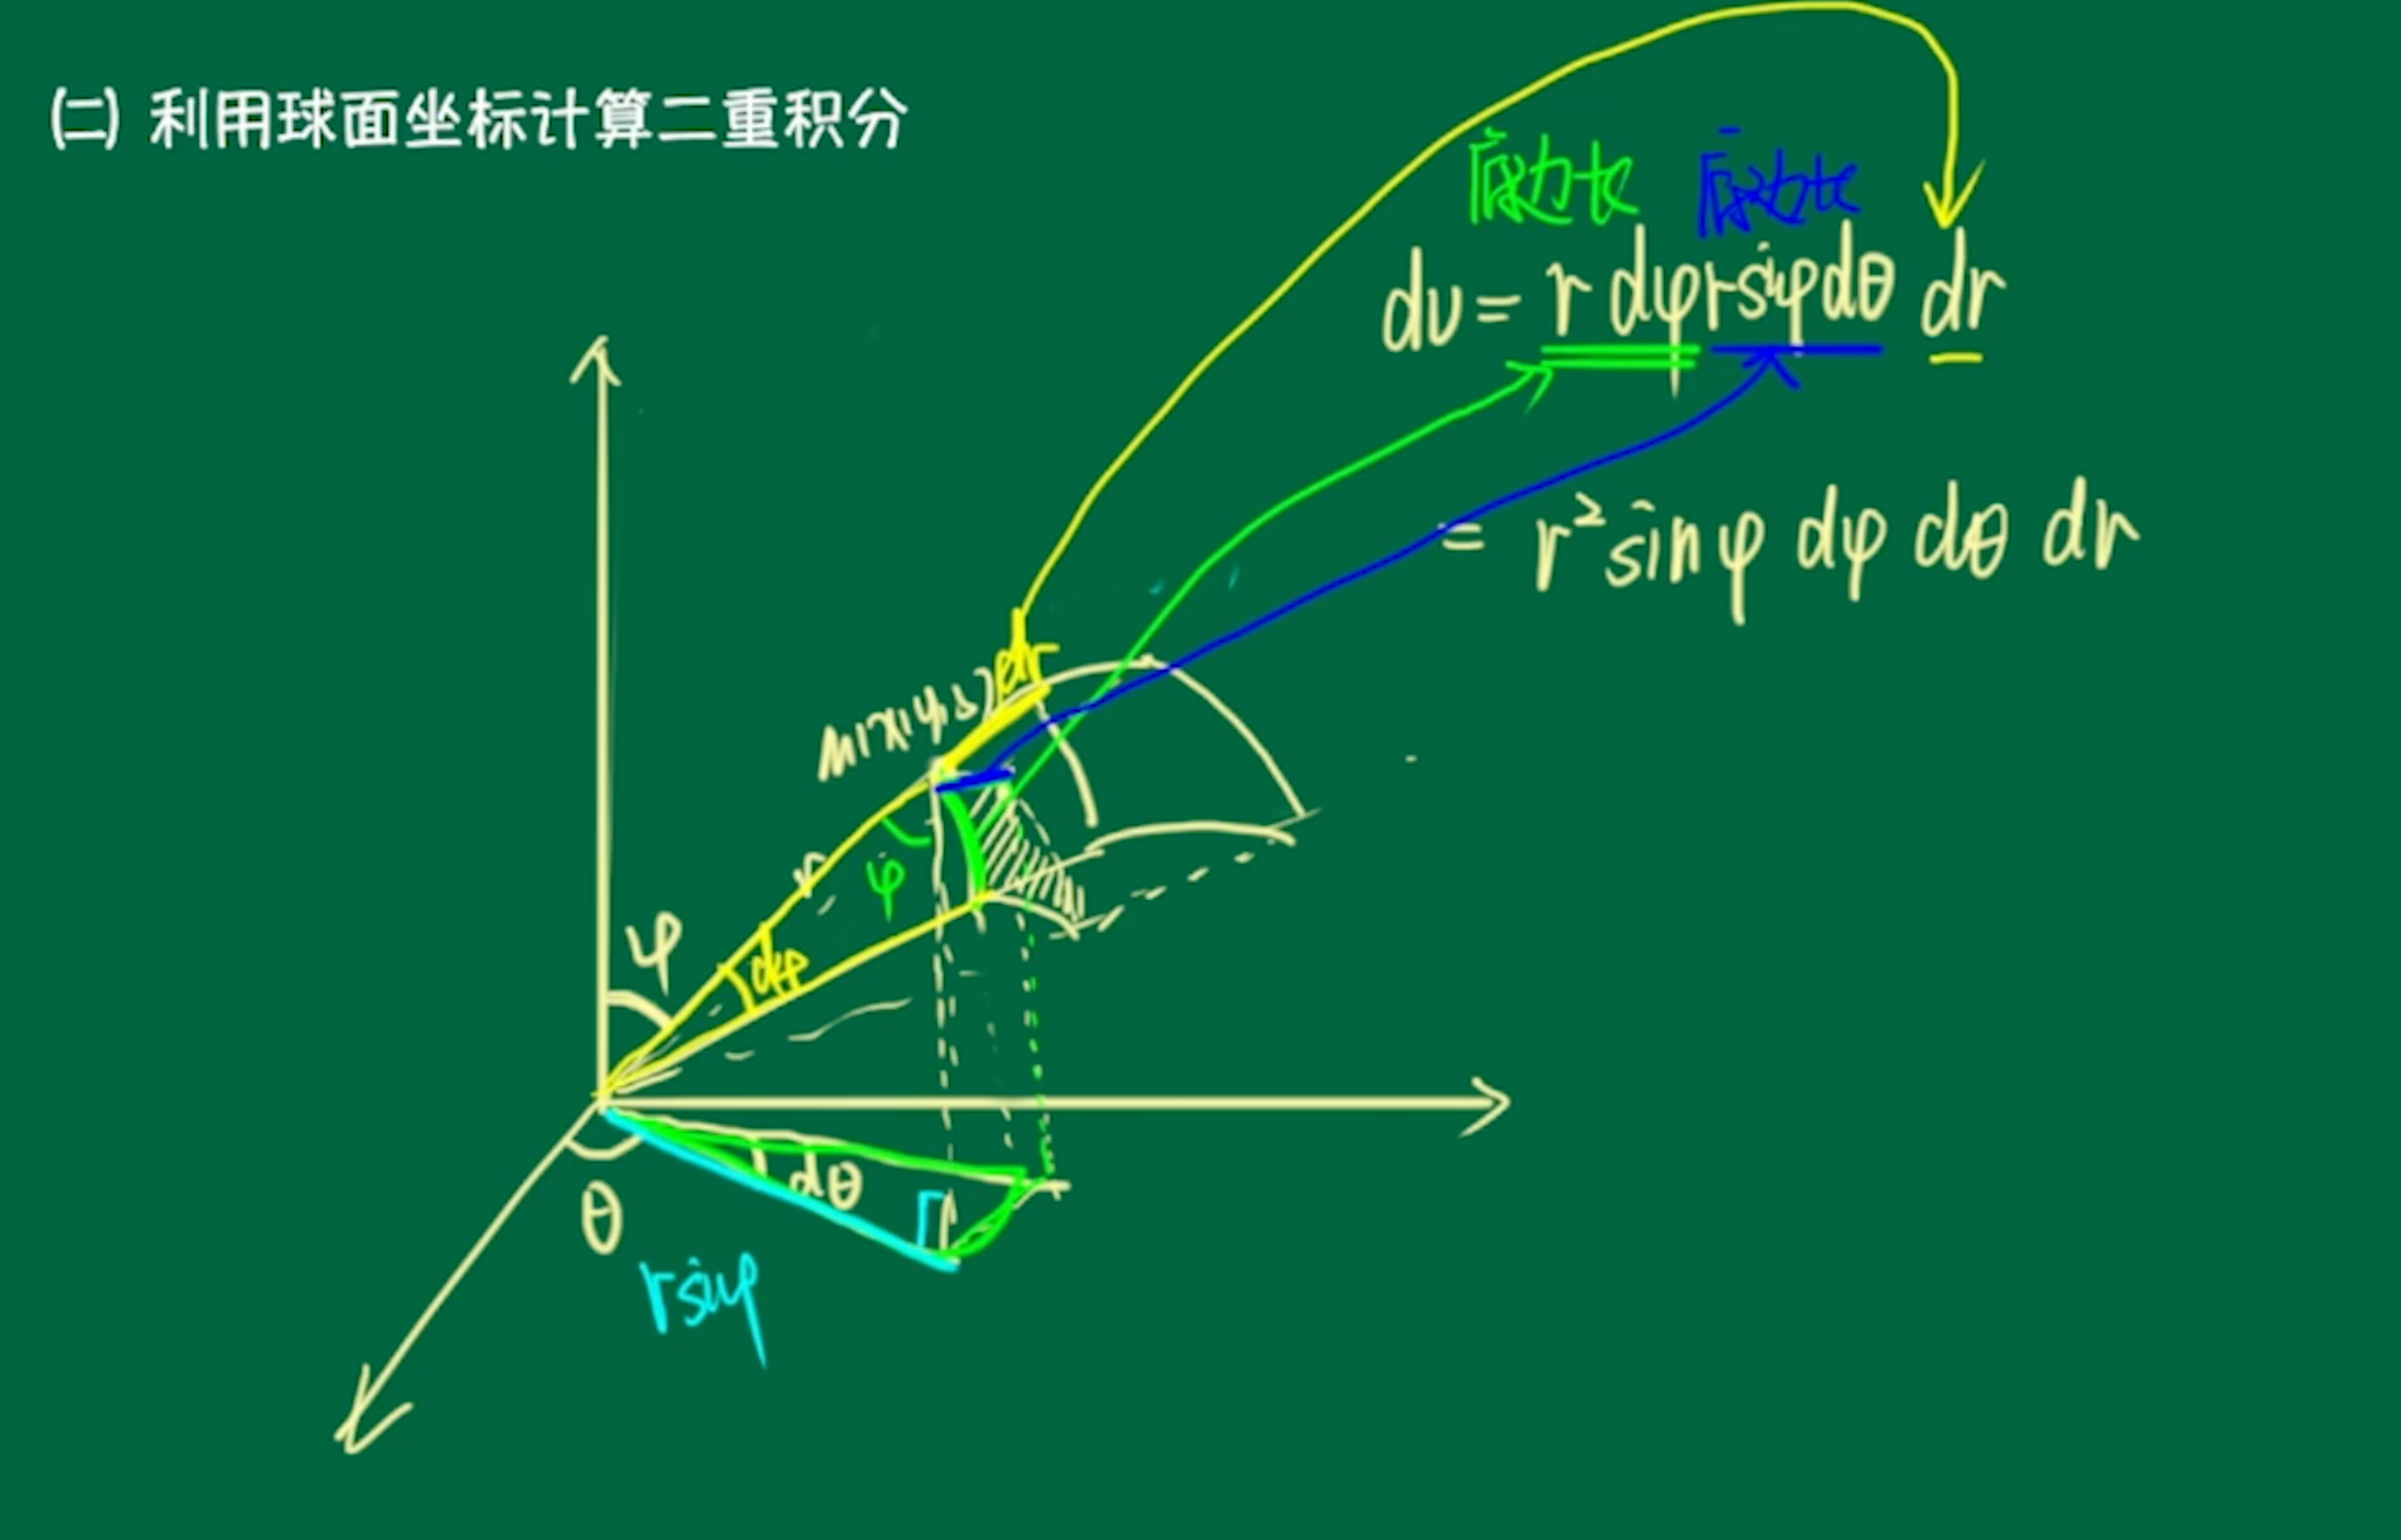 ㈡ 利用球面坐标计算二重积分
dv = r dφ r sinφ dθ dr
= r² sin φ dφ dθ dr
dr
M(x,y,z)
r
φ
φ
dφ
dθ
θ
r sinφ